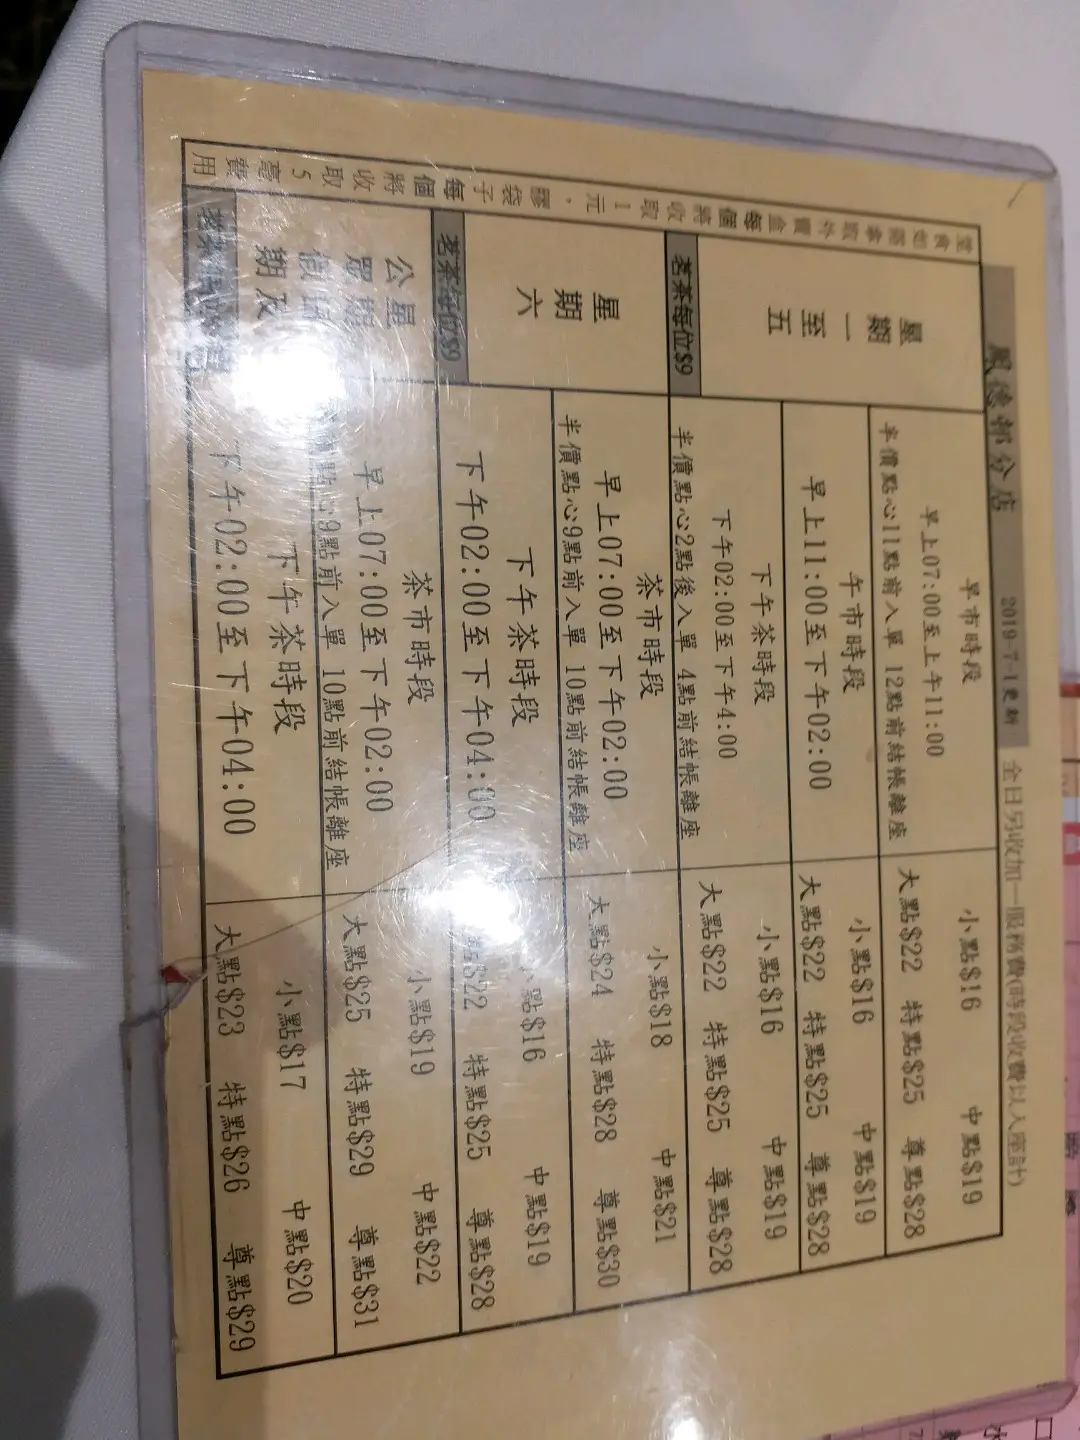 鳳德邨分店 2019-7-1更新 全日另收加一服務費(時段收費以入座計)
星期一至五
茗茶每位$9
早市時段
早上07:00至上午11:00
半價點心11點前入單 12點前結帳離座
小點$16 中點$19
大點$22 特點$25 尊點$28
午市時段
早上11:00至下午02:00
小點$16 中點$19
大點$22 特點$25 尊點$28
下午茶時段
下午02:00至下午4:00
半價點心2點後入單 4點前結帳離座
小點$16 中點$19
大點$22 特點$25 尊點$28
星期六
茗茶每位$9
茶市時段
早上07:00至下午02:00
半價點心9點前入單 10點前結帳離座
小點$18 中點$21
大點$24 特點$28 尊點$30
下午茶時段
下午02:00至下午04:00
小點$16 中點$19
點$22 特點$25 尊點$28
星期
及
公眾假
茗茶
茶市時段
早上07:00至下午02:00
點心9點前入單 10點前結帳離座
小點$19 中點$22
大點$25 特點$29 尊點$31
下午茶時段
下午02:00至下午04:00
小點$17 中點$20
大點$23 特點$26 尊點$29
堂食如需拿取外賣盒每個將收取1元，膠袋子每個將收取5毫費用